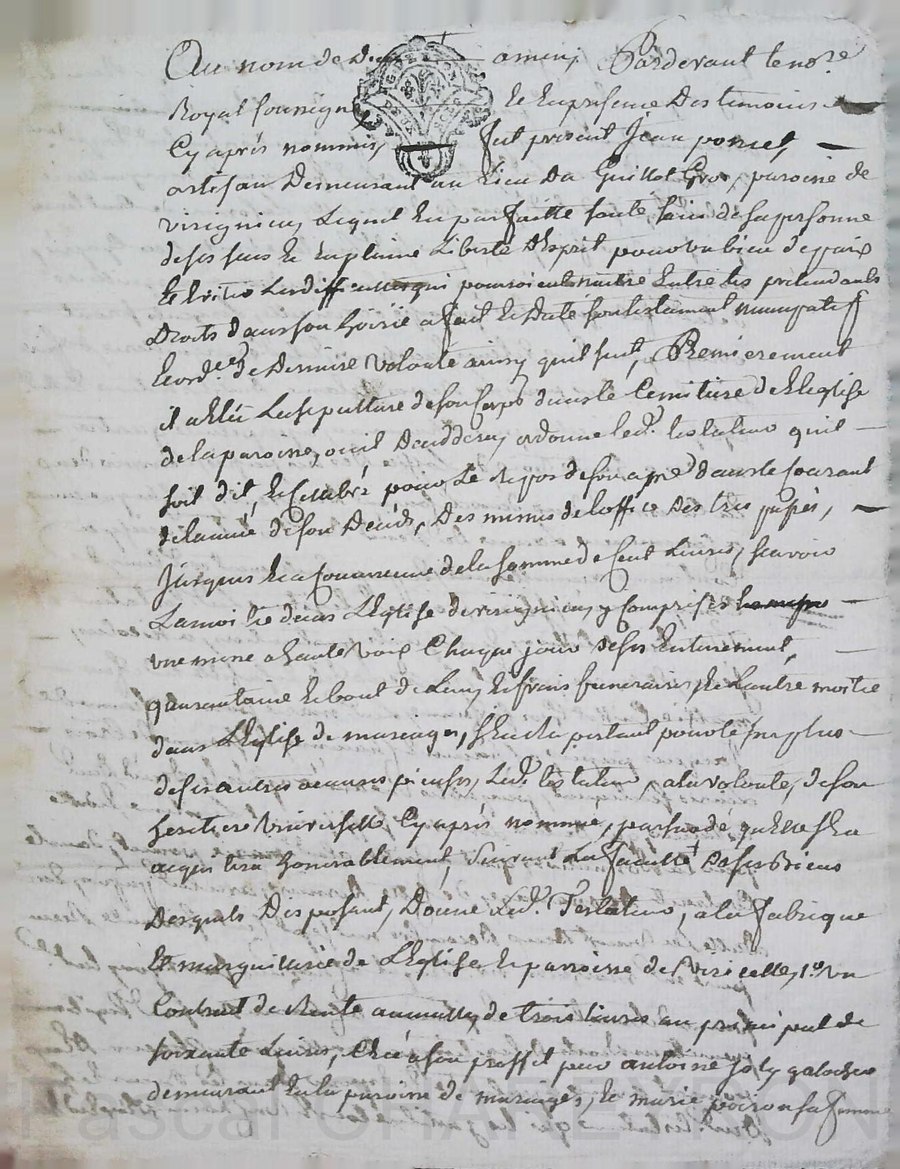 Au nom de Dieu amen, Pardevant le no.re
Royal soussigne, et en presence des temoins
Cy après nommés, fut présent Jean poncet,
artisan Demeurant au Lieu Du Guillot Gros, paroisse de
virignieu Lequel en parfaitte santé, sain de sa personne
de ses sens et en plaine Liberté d'Esprit pour
et Eviter Les difficultes qui pouroient naitre Entre les pretendants
Droits dans son hoirie a fait et Dicté son testament nuncupatif
et ord.ce de Derniere volonté ainsy quil suit, Premierement
il a élû La sepulture de son Corps dans le Cemitiere de L'Eglise
de la paroisse, ou il Deceddera, ordonne led. testateur quil
soit dit et Celebré pour Le Repos de son ame dans le Courant
de lannée de son Decéds, Des messes de loffice Des trepassés,
Jusques a la Concurrence de la somme de Cent Livres, scavoir
La moitié dans L'Eglise de virignieu y Comprises
une messe a haute voix Chaque jour de ses Enterement,
quarantaine et bout de Lan, et frais funeraires, et Lautre moitié
dans L'Eglise de maringes, sen raportant pour le surplus
de ses autres oeuvres pieuses, Led. testateur, a la volonté, de son
heritiere universelle Cy après nommée, persuadé quelle sen
aquittera honnorablement, suivant La faculté de ses Biens
Desquels Disposant, Donne Led. Testateur, a la fabrique
et marguillerie de L'Eglise et parroisse de viricelle, 1.o un
Contract de Rente annuelle de trois Livres au principal de
soixante Livres, Créé a son proffit par antoine Joly galochier
demeurant en la paroisse de maringes, et marie poizon sa femme
Pascal CHAREYRON